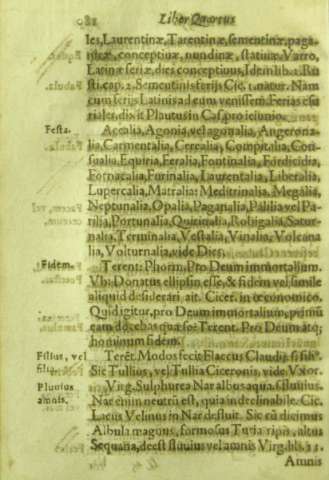 Liber Quartus
les, Laurentinæ, Tarentinæ, sementinæ, paga-
conceptiuæ, nundinæ, statiuæ. Varro,
Latinæ feriæ, dies conceptiuus, Idem lib. 1. Ru
sti. cap. 2. Sementinis ferijs Cic. 1. natur. Nam
cum ferijs Latinis ad eum venissem. Ferias esu
riales, dixit Plautus in Cap. pro ieiunio.
Festa.
Acalia, Agonia, vel agonalia, Angerona-
lia, Carmentalia, Cerealia, Compitalia, Con-
sualia, Equiria, Feralia, Fontinalia, Fordicidia,
Fornacalia, Furinalia, Laurentalia, Liberalia,
Lupercalia, Matralia: Meditrinalia, Megalia,
Neptunalia, Opalia, Paganalia, Palilia vel Pa-
rilia, Portunalia, Quirinalia, Robigalia, Satur-
nalia, Terminalia, Vestalia, Vinalia, Volcana
lia, Volturnalia, vide Dies.
Fidem.
Terent: Phorm. Pro Deum immortalium.
Vbi Donatus ellipsin esse, & fidem vel simile
aliquid desiderari ait. Cicer. in œconomico.
Quid igitur, pro Deum immortalium, primū
eam docebas quæso? Terent. Pro Deum atq;
hominum fidem.
Filius, vel
filia.
Terēt. Modos fecit Flaccus Claudij. s. filiꝰ.
Sic Tullius, vel Tullia Ciceronis, vide Vxor.
Fluuius
amnis.
Virg. Sulphurea Nar albus aqua. s. fluuius.
Nar enim neutrū est, quia indeclinabile. Cic.
Lacus Velinus in Nar defluit. Sic cū dicimus
Albula magnus, formosus Turia ripis, altus
Sequana, deest fluuius vel amnis Virg. lib.
Amnis